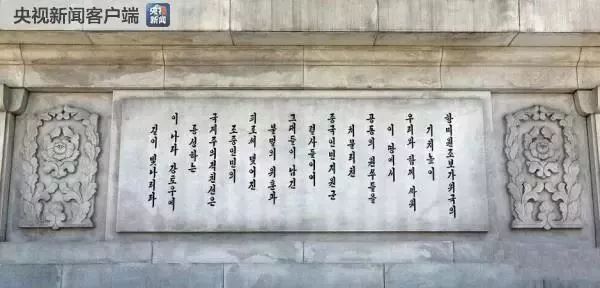 央视新闻客户端
央视新闻
항미원조보가위국의
기치높이
우리와 함께 싸워
이 땅에서
공동의 원쑤들을
처물리친
중국인민지원군
렬사들이여
그대들이 남긴
불멸의 위훈과
피로써 맺어진
조중인민의
국제주의적친선은
륭성하는
이 나라 강토우에
길이 빛나리라